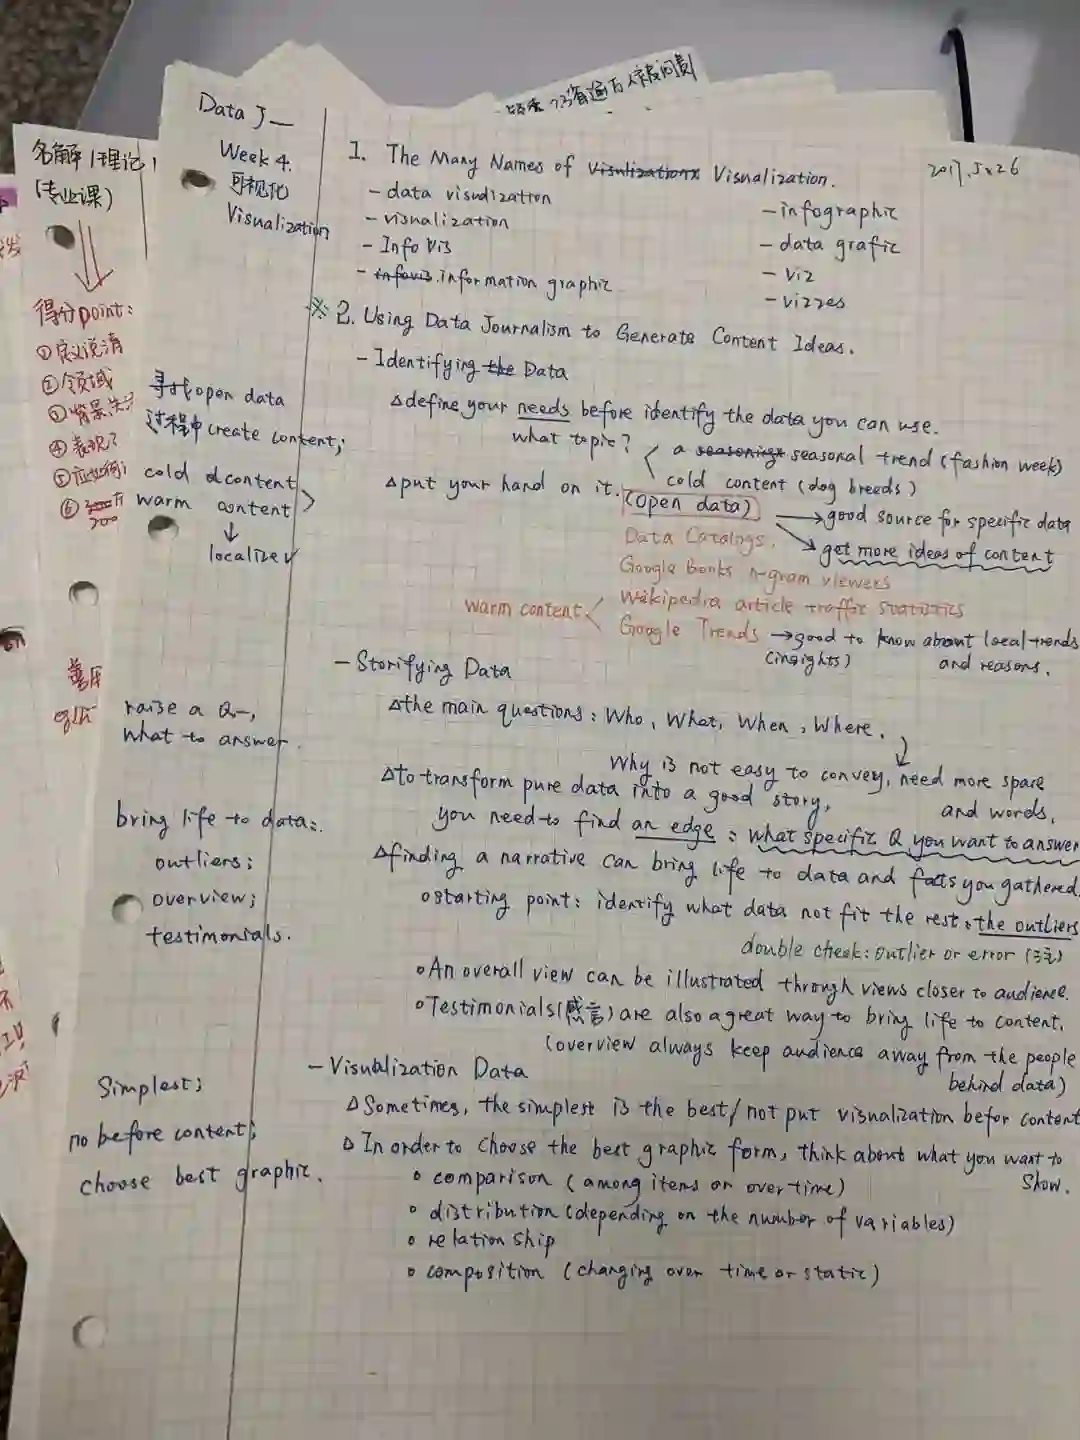 Data J—
Week 4.
可视化
Visualization
2017.5.26
1. The Many Names of Visualization.
- data visualization
- visualization
- Info Vis
- information graphic
- infographic
- data grafic
- viz
- vizzes
※ 2. Using Data Journalism to Generate Content Ideas.
- Identifying Data
△define your needs before identify the data you can use.
what topic?
a seasonal trend (fashion week)
cold content (dog breeds)
△put your hand on it.
(open data)
→good source for specific data
→get more ideas of content
Data Catalogs.
Google Books n-gram viewers
warm content
Wikipedia article traffic statistics
Google Trends →good to know about local trends
(insights) and reasons.
- Storifying Data
△the main questions: Who, What, When, Where.
Why is not easy to convey, need more space
and words.
△to transform pure data into a good story,
you need to find an edge: what specific Q you want to answer
△finding a narrative can bring life to data and facts you gathered.
starting point: identify what data not fit the rest, the outliers
double check: outlier or error (注)
An overall view can be illustrated through views closer to audience.
Testimonials(感言) are also a great way to bring life to content.
(overview always keep audience away from the people
behind data)
- Visualization Data
△Sometimes, the simplest is the best/not put visualization befor content
△In order to choose the best graphic form, think about what you want to
show.
comparison (among items or over time)
distribution (depending on the number of variables)
relationship
composition (changing over time or static)
寻找open data
过程中create content;
cold content
warm content
↓
localize✓
raise a Q—,
what to answer.
bring life to data:
outliers;
overview;
testimonials.
Simplest;
no before content;
choose best graphic.
名解 | 理论
(专业课)
得分point:
①定义说清
②领域
④表现